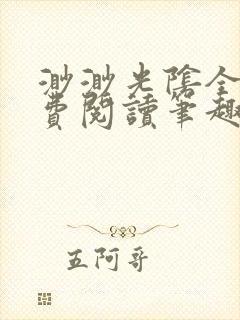 渺渺光陰全
費閱讀筆趣
五阿哥